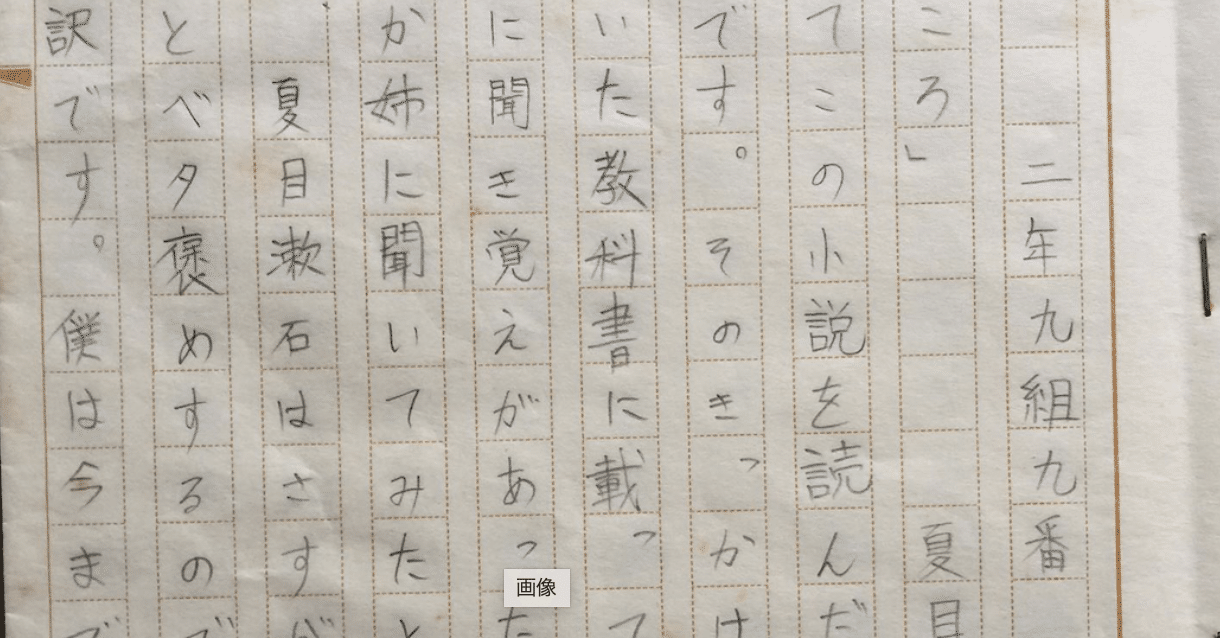 二年九組九番
ころ」 夏目
てこの小説を読んだ
です。そのきっかけ
いた教科書に載って
に聞き覚えがあった
か姉に聞いてみたと
夏目漱石はさすが
とベタ褒めするので
訳です。僕は今まで
画像